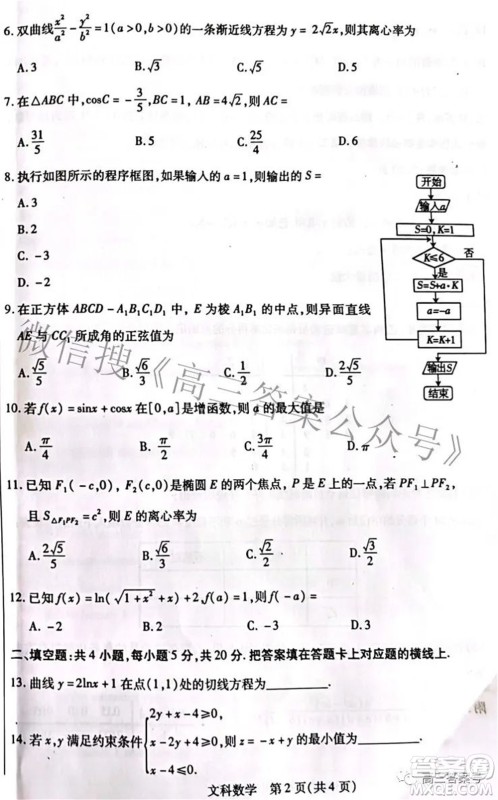 6.双曲线x²/a²-y²/b²=1(a>0,b>0)的一条渐近线方程为y=2√2x,则其离心率为
A.3 B.√3 C.√5 D.5
7.在△ABC中,cosC=-3/5,BC=1,AB=4√2,则AC=
A.31/5 B.5 C.25/4 D.6
8.执行如图所示的程序框图,如果输入的a=1,则输出的S=
A.3
B.2
C.-3
D.-2
开始
输入a
S=0,K=1
K≤6
否
是
S=S+a·K
a=-a
K=K+1
输出S
结束
9.在正方体ABCD-A₁B₁C₁D₁中,E为棱A₁B₁的中点,则异面直线
AE与CC₁所成角的正弦值为
A.√5/5 B.√6/3 C.1/2 D.2√5/5
10.若f(x)=sinx+cosx在[0,a]是增函数,则a的最大值是
A.π/4 B.π/2 C.3π/4 D.π
11.已知F₁(-c,0),F₂(c,0)是椭圆E的两个焦点,P是E上的一点,若PF₁⊥PF₂,
且S△F₁PF₂=c²,则E的离心率为
A.2√5/5 B.√6/3 C.√2/2 D.√3/2
12.已知f(x)=ln(√1+x²+x)+2,f(a)=1,则f(-a)=
A.-2 B.-3 C.2 D.3
二、填空题:共4小题,每小题5分,共20分.把答案填在答题卡上对应题的横线上.
13.曲线y=2lnx+1在点(1,1)处的切线方程为________.
14.若x,y满足约束条件{2y+x-4≥0, x-2y+4≥0, x-4≤0.则z=-x+y的最小值为________.
文科数学 第2页(共4页)
微信搜《高三答案公众号》
高三答案号